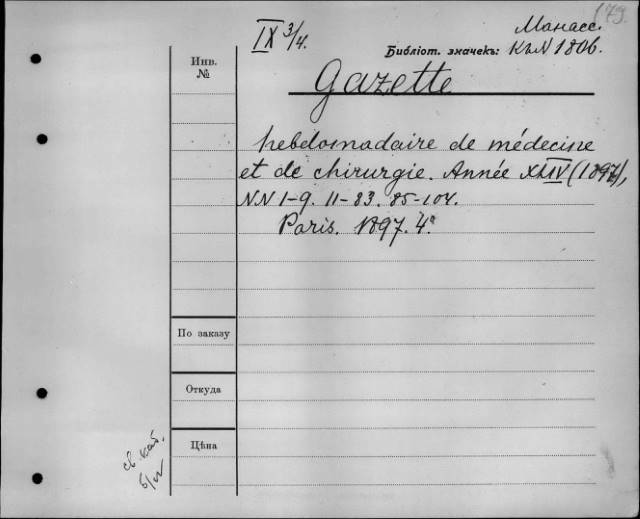 179.
IX 3/4.
Манасс.
Библіот. значекъ: К.ъ N 1806.
Инв.
№
Gazette
hebdomadaire de médecine
et de chirurgie. Année XLIV (1897),
NN 1-9. 11-83. 85-104.
Paris. 1897. 4°
По заказу
Откуда
Цѣна
св. кат.
б/и